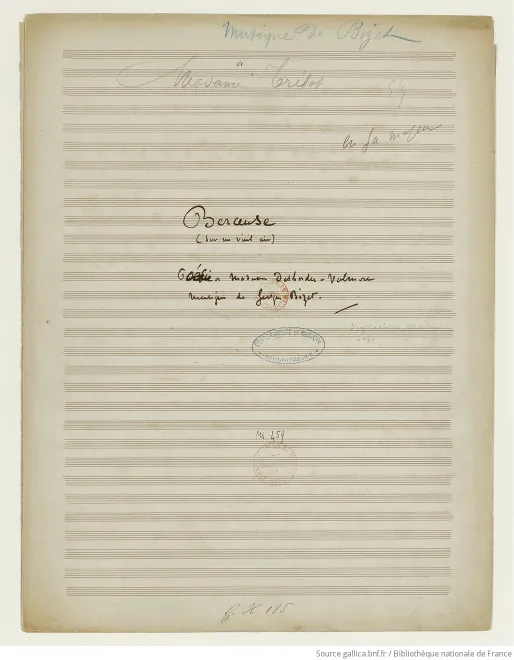 Musique de Bizet
à
Madame Trélat
en fa majeur
Berceuse
(sur un vieil air)
Poésie de Madame Desbordes-Valmore
musique de Georges Bizet.
Ms. 459
Source gallica.bnf.fr / Bibliothèque nationale de France